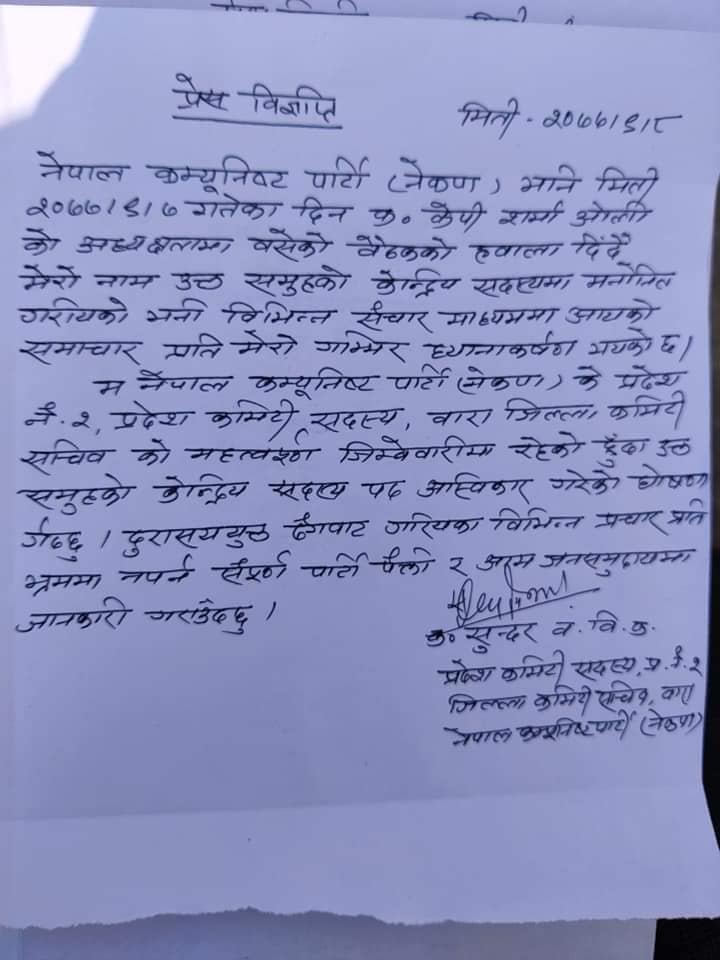 प्रेस विज्ञप्ति
मिती - २०७७।९।८
नेपाल कम्यूनिष्ट पार्टी (नेकपा) भनि मिती
२०७७।९।७ गतेका दिन क. केपी शर्मा ओली
को अध्यक्षतामा वसेको वैठकको हवाला दिँदै
मेरो नाम उक्त समुहको केन्द्रिय सदस्यमा मनोनित
गरीयको भनी विभिन्न संचार माध्यममा आयको
समाचार प्रति मेरो गम्भिर ध्यानाकर्षण भयको छ।
म नेपाल कम्यूनिष्ट पार्टी (नेकपा) के प्रदेश
नं. २, प्रदेश कमिटी सदस्य, वारा जिल्ला कमिटी
सचिव को महत्वपूर्ण जिम्वेवारीमा रहेको हुँदा उक्त
समुहको केन्द्रिय सदस्य पद अस्विकार गरेको घोषणा
गर्दछु। दुरासययुक्त ढंगवाट गरियका विभिन्न प्रचार प्रति
भ्रममा नपर्न संपूर्ण पार्टी पंक्ती र आम जनसमुदायमा
जानकारी गराउँदछु।
क. सुन्दर व. वि. क.
प्रदेश कमिटी सदस्य, प्र. नं. २
जिल्ला कमिटी सचिव, वारा
नेपाल कम्यूनिष्ट पार्टी (नेकपा)